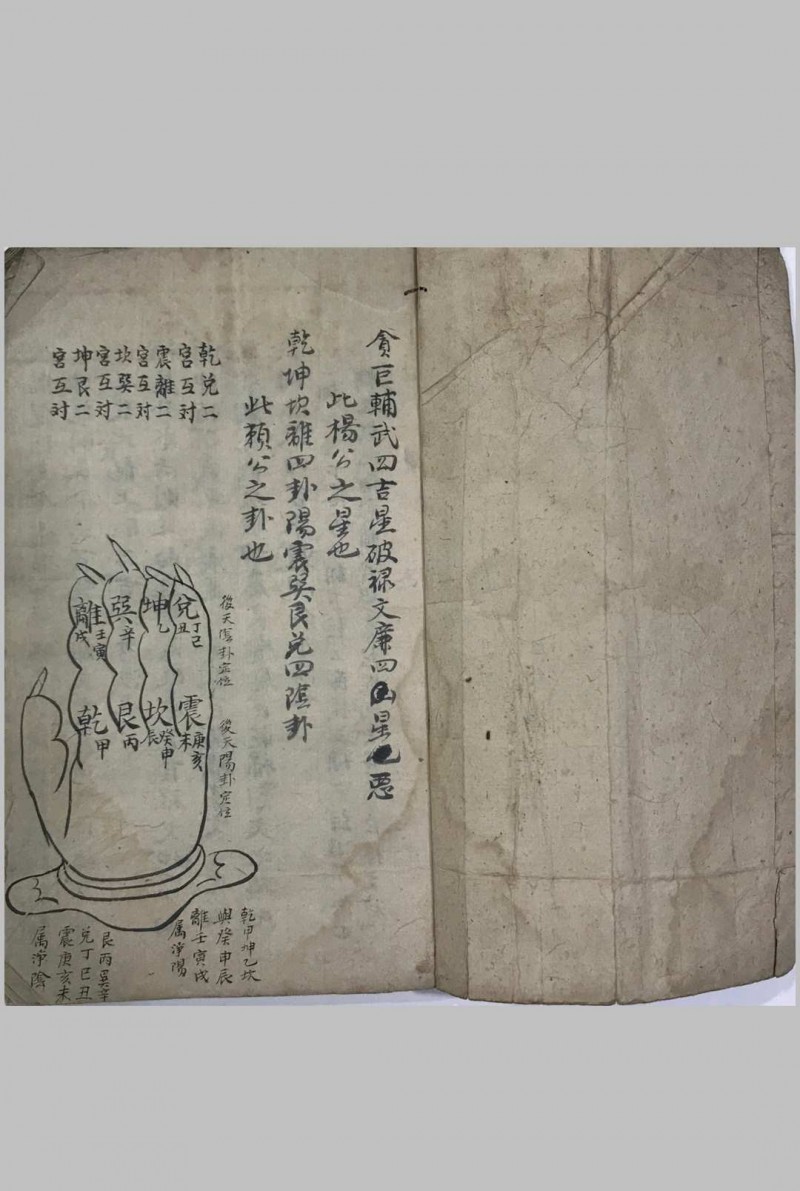 貪巨輔武四吉星破祿文廉四凶星也惡
此楊公之星也
乾坤坎離四卦陽震巽艮兑四陰卦
此賴公之卦也
乾兑二
宮互对
震離二
宮互对
坎巽二
宮互对
坤艮二
宮互对
後天陰卦定位
後天陽卦定位
兑丁巳丑
坤乙
巽辛
離壬寅戌
震庚亥未
坎癸申辰
艮丙
乾甲
乾甲坤乙坎
與癸申辰
離壬寅戌
属淨陽
艮丙巽辛
兑丁巳丑
震庚亥未
属淨陰